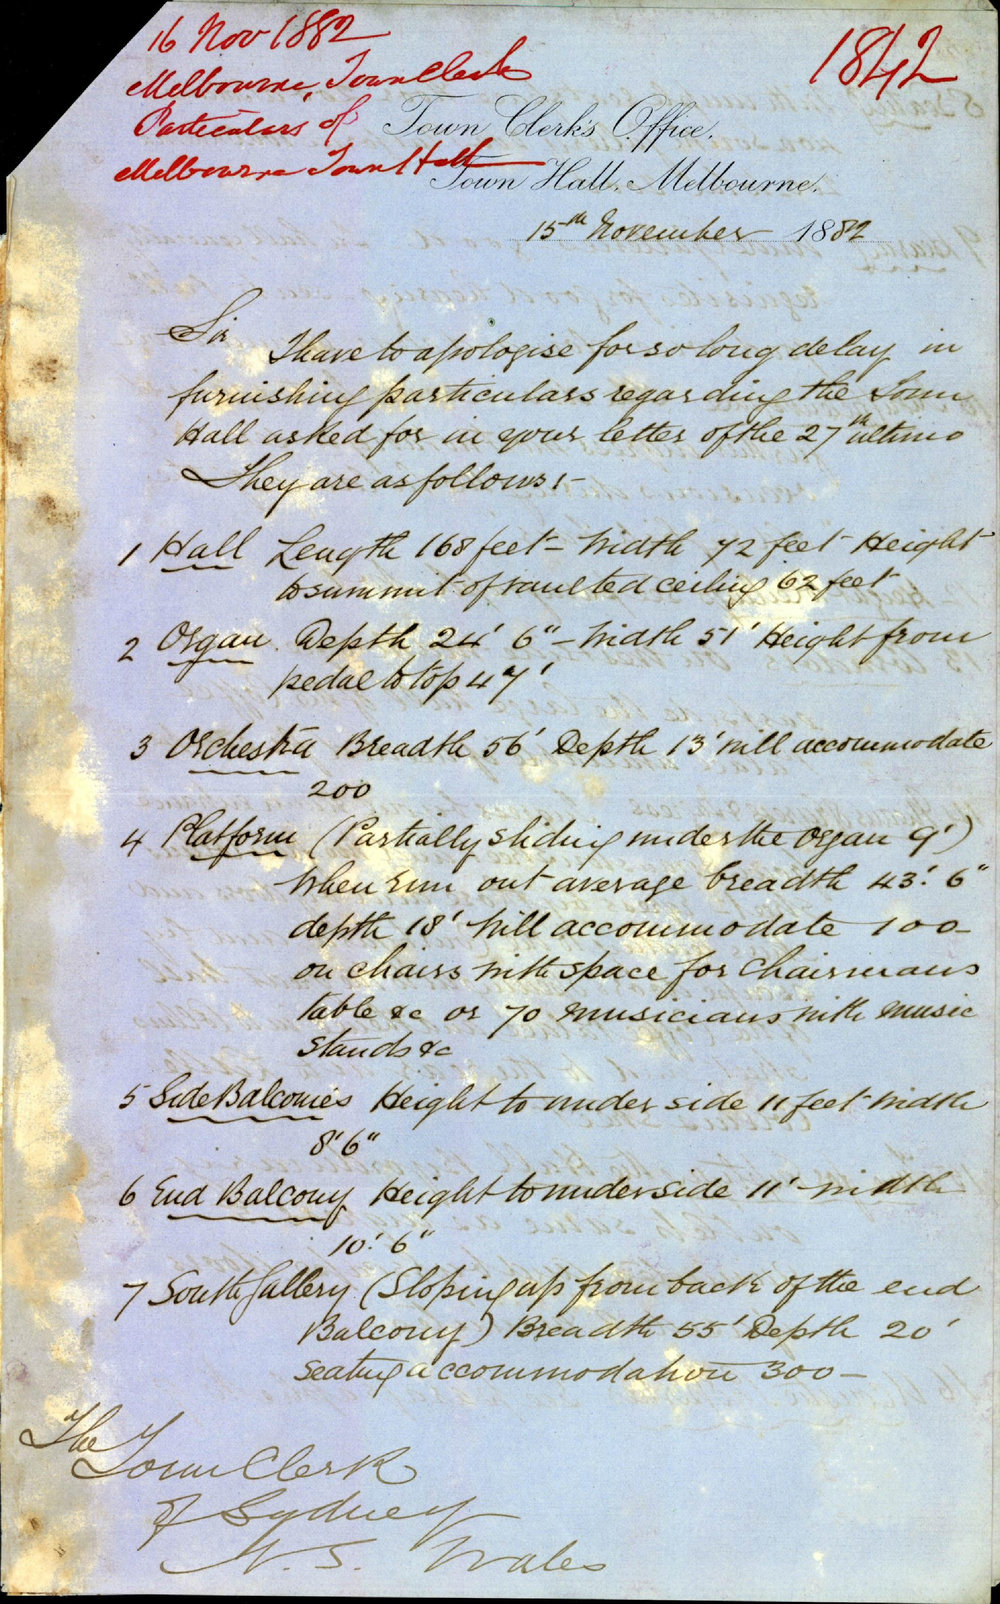 16 Nov 1882
1842
Melbourne, Town Clerk
Particulars of
Melbourne Town Hall
Town Clerk's Office.
Town Hall, Melbourne.
15th November 1882
Sir
I have to apologise for so long delay in
furnishing particulars regarding the Town
Hall asked for in your letter of the 27th ultimo
They are as follows:-
1 Hall Length 168 feet - Width 72 feet Height
to summit of vaulted ceiling 62 feet
2 Organ. Depth 24' 6" - Width 51' Height from
pedal to top 47'
3 Orchestra Breadth 56' Depth 13' will accommodate
200
4 Platform (Partially sliding under the Organ 9')
When run out average breadth 43'. 6"
depth 18' Will accommodate 100-
on chairs with space for Chairmans
table &c or 70 musicians with music
stands &c
5 Side Balconies Height to under side 11 feet width
8' 6"
6 End Balcony Height to underside 11' - width
10'. 6"
7 South Gallery (Sloping up from back of the end
Balcony) Breadth 55' Depth 20'
seating accommodation 300 -
The
Town Clerk
of Sydney
N. S. Wales